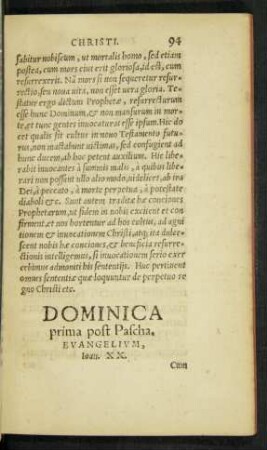 CHRISTI. 94
sabitur nobiscum, ut mortalis homo, sed etiam
postea, cum mors eius erit gloriosa, id est, cum
resurrexerit. Nã mors si non sequeretur resur-
rectio, seu noua uita, non esset uera gloria. Te-
statur ergo dictum Prophetæ, resurrecturum
esse hunc Dominum, & non mansurum in mor-
te, et tunc gentes inuocaturas esse ipsum. Hic do-
cet qualis sit cultus in nouo Testamento futu-
rus, non mactabunt uictimas, sed confugient ad
hunc ducem, ab hoc petent auxilium. Hic libe-
rabit inuocantes à summis malis, à quibus libe-
rari non possent ullo alio modo, uidelicet, ab ira
Dei, à peccato, à morte perpetua, à potestate
diaboli &c. Sunt autem traditæ hæ conciones
Prophetarum, ut fidem in nobis excitent et con-
firment, et nos hortentur ad hos cultus, ad agni
tionem & inuocationem Christi, atq; ita dulce-
scent nobis hæ conciones, & beneficia resurre-
ctionis intelligemus, si inuocationem serio exer
cebimus admoniti his sententijs. Huc pertinent
omnes sententiæ quæ loquuntur de perpetuo re
gno Christi etc.
DOMINICA
prima post Pascha,
EVANGELIVM,
Ioan. XX.
Cum